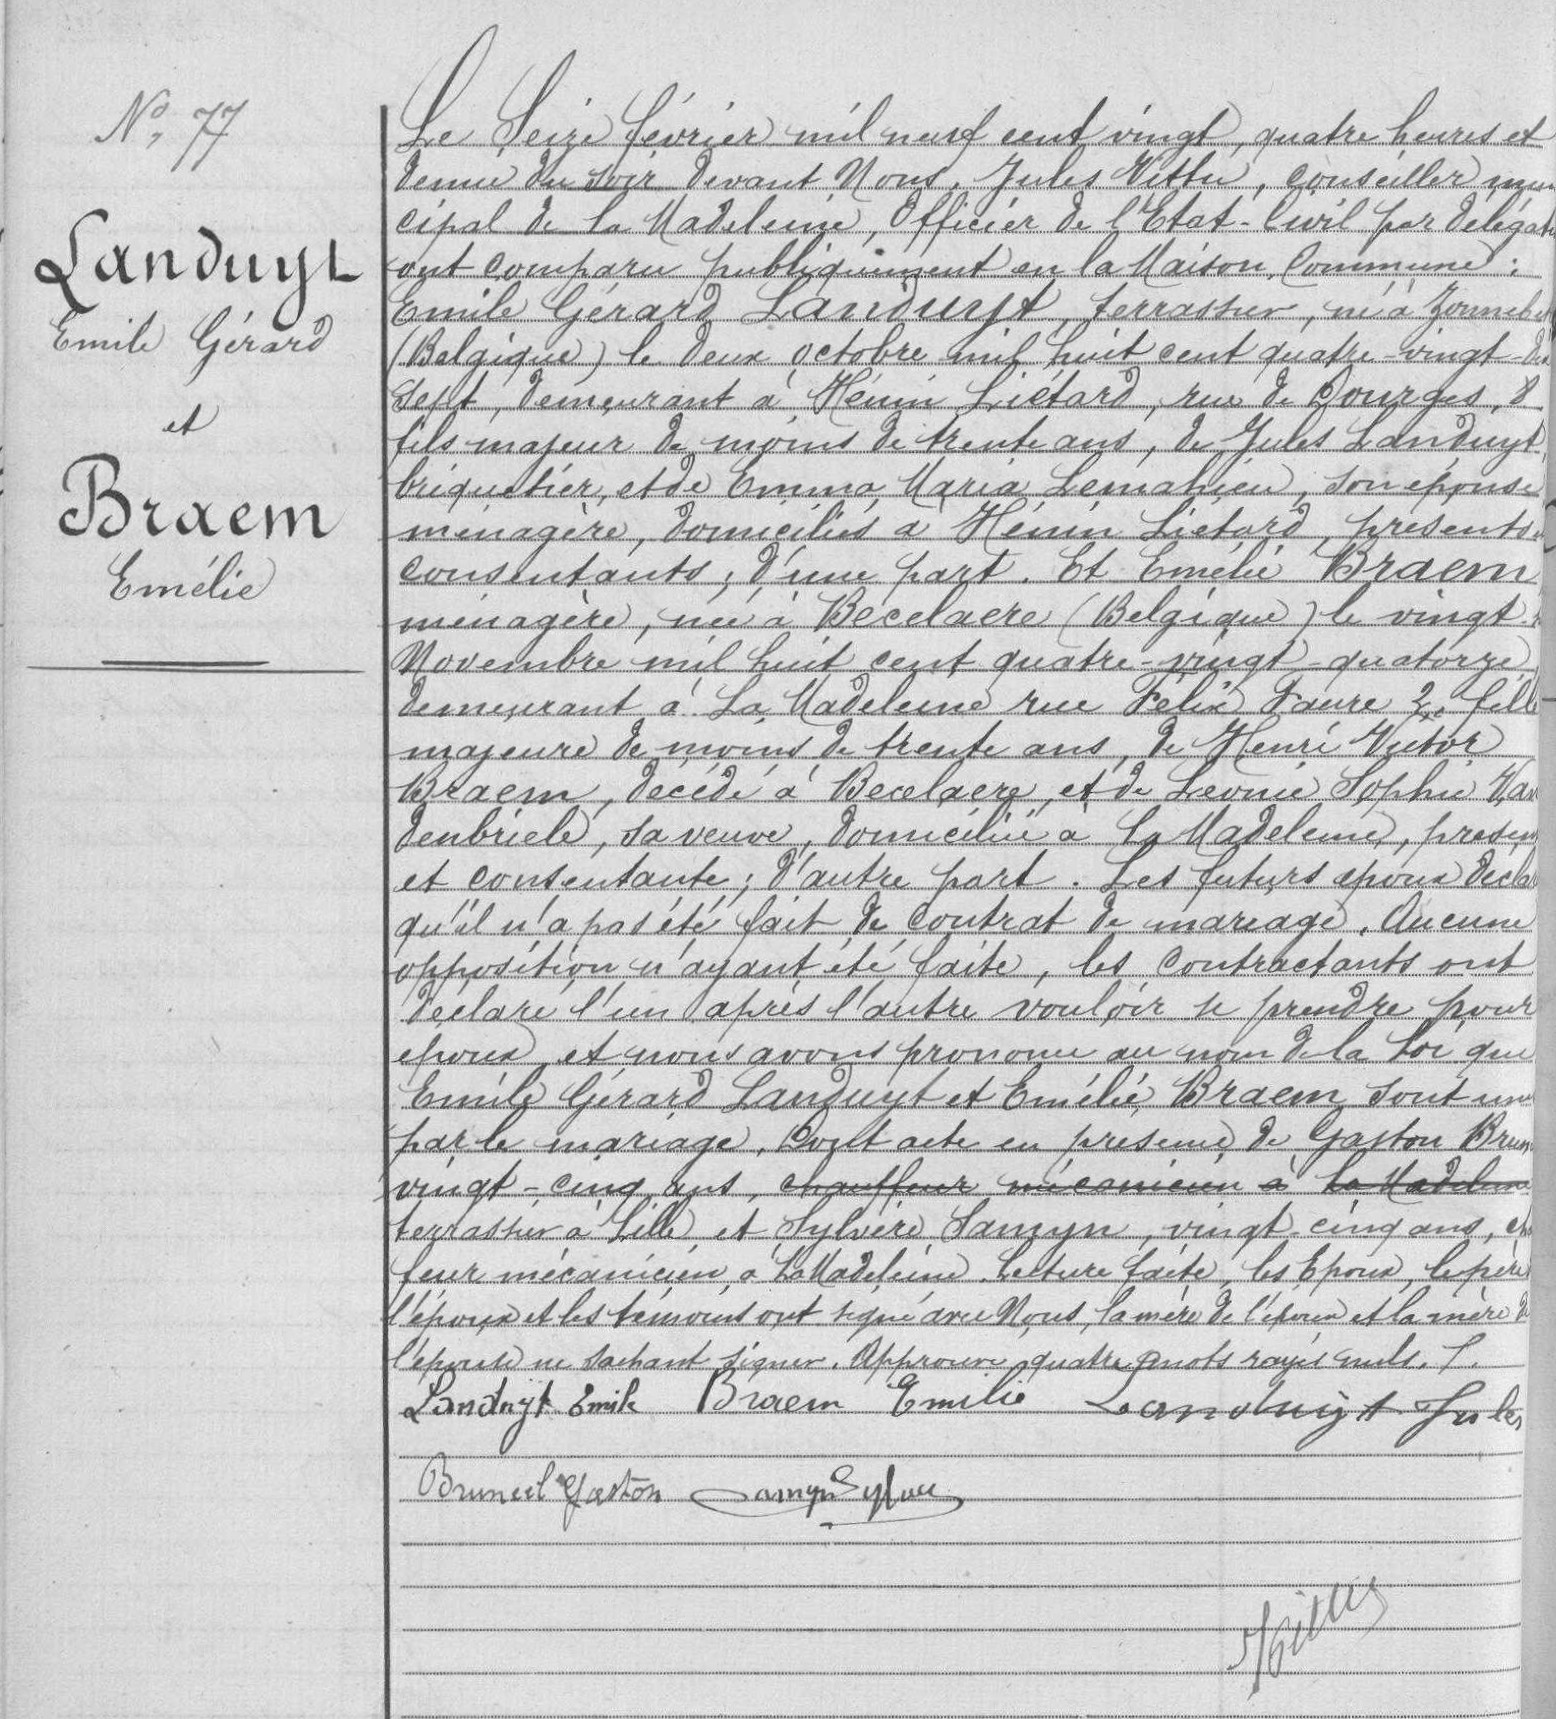 No, 77
Landuyt
Emile Gérard
et
Braem
Emélie
Le Seize février mil neuf cent vingt, quatre heures et
demie du soir devant Nous, Jules Vittu, conseiller muni
cipal de La Madeleine, Officier de l'Etat-Civil par délégati
ont comparu publiquement en la Maison Commune :
Emile Gérard Landuyt, terrassier, né à Zonnebe
(Belgique) le deux octobre mil huit cent quatre-vingt-dix
sept, demeurant à Hénin Liétard, rue de Dourges, 8
fils majeur de moins de trente ans, de Jules Landuyt,
briquetier, et de Emma Maria Lemahieu, son épouse
ménagère, domiciliés à Hénin Liétard, présents
consentants ; d'une part. Et Emélie Braem
ménagère, née à Bécelaere (Belgique) le vingt
Novembre mil huit cent quatre-vingt-quatorze,
demeurant à La Madeleine rue Félix Faure 2, fille
majeure de moins de trente ans, de Henri Victor
Braem, décédé à Becelaere, et de Léonie Sophie Van
denbriele, sa veuve, domiciliée à La Madeleine, présen
et consentante ; d'autre part. Les futurs époux décla
qu'il n'a pas été fait de contrat de mariage. Aucune
opposition n'ayant été faite, les contractants ont
déclaré l'un après l'autre vouloir se prendre pour
époux et nous avons prononcé au nom de la Loi que
Emile Gérard Landuyt et Emélie Braem sont unis
par le mariage. Dont acte en présence de Gaston Brun
vingt-cinq ans, chauffeur mécanicien à La Madeleine
terrassier à Lille et Sylvère Samyn, vingt-cinq ans, ch
feur mécanicien à La Madeleine. Lecture faite, les Epoux, le père
l'époux et les témoins ont signé avec Nous, la mère de l'époux et la mère de
l'épouse ne sachant signer. Approuvé quatre mots rayés nuls. /.
Landuyt Emile Braem Emilie Landuijt Jules
Bruneel Gaston Samyn Sylvere
Vittu